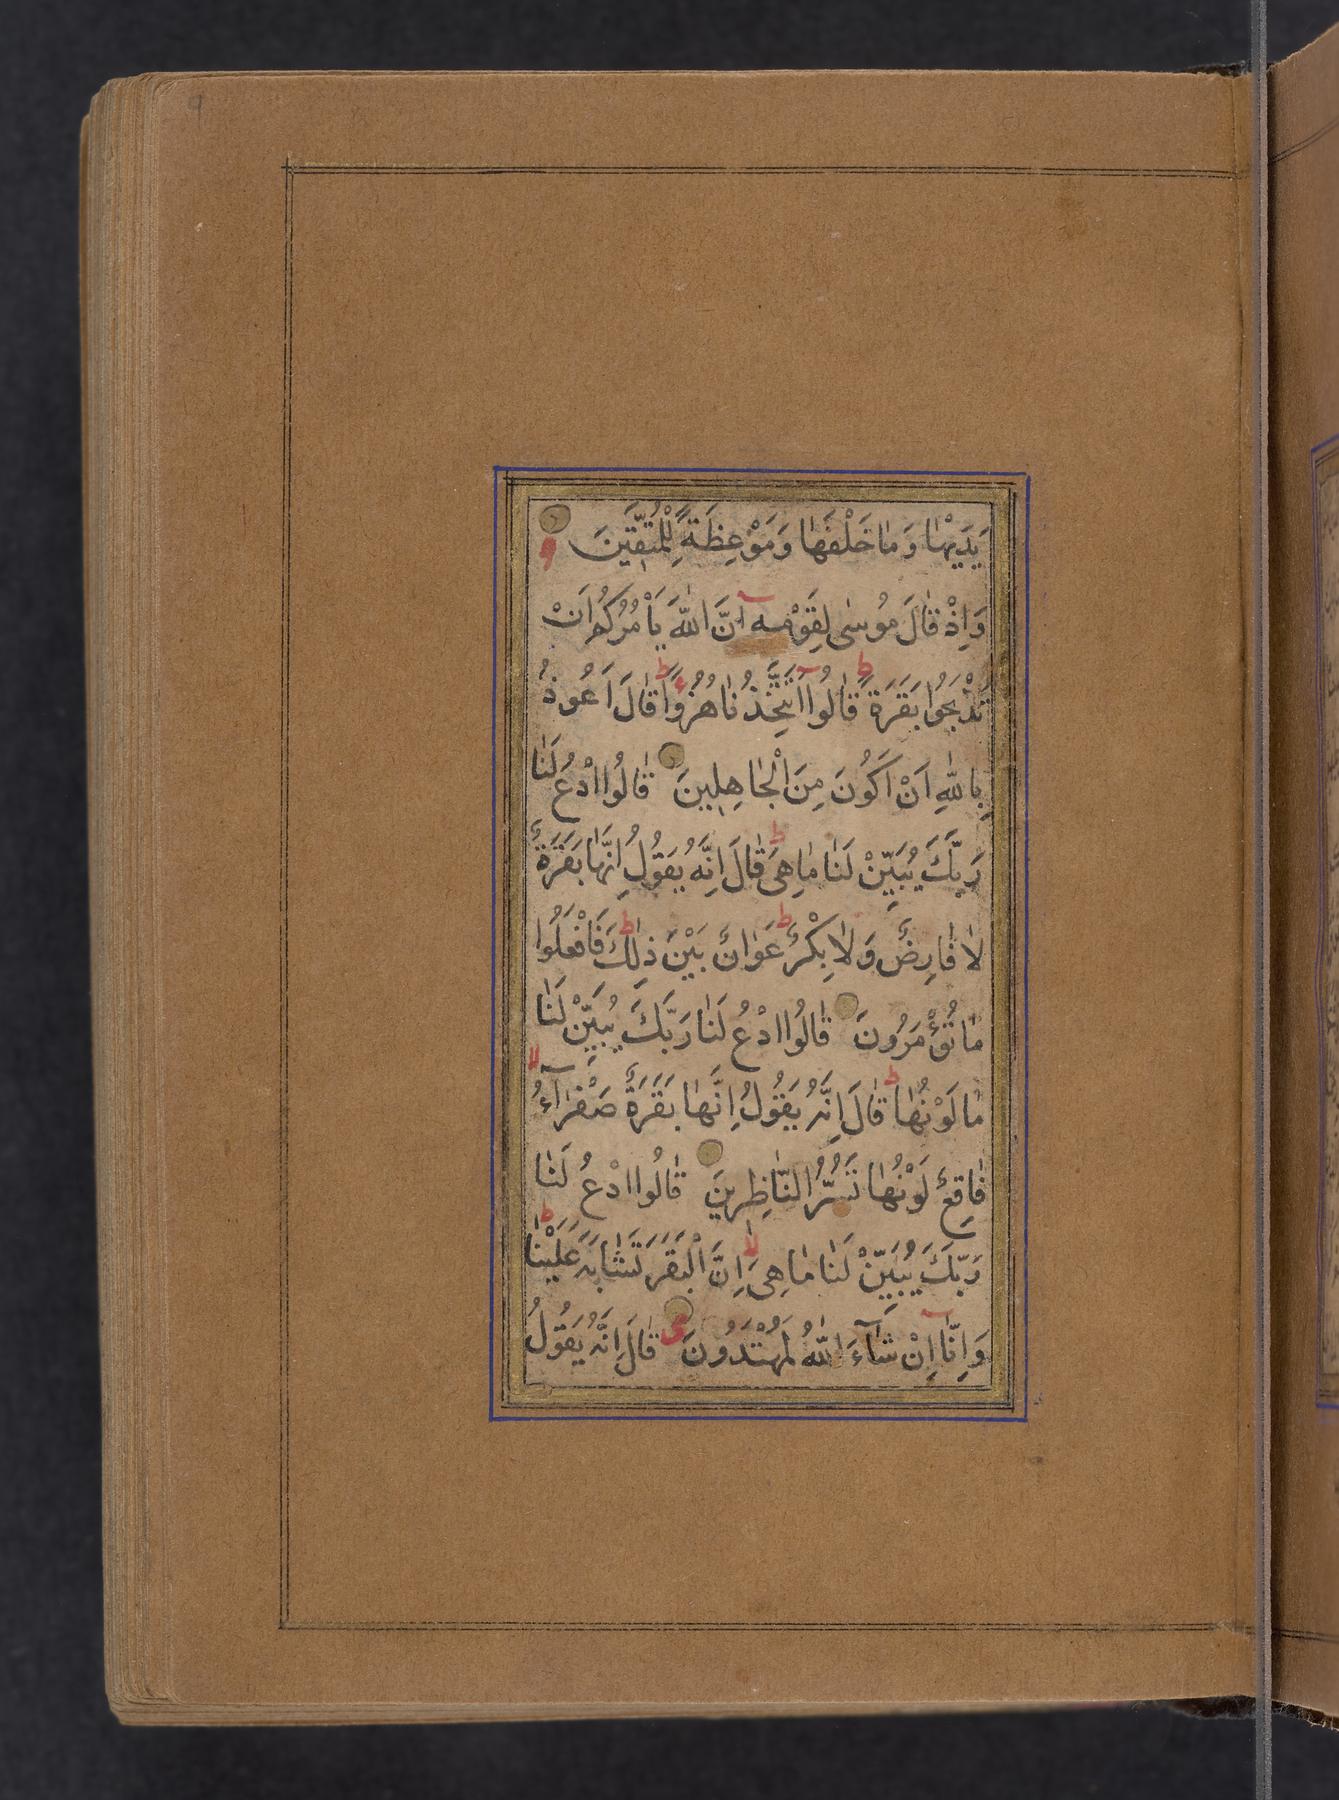 يَدَيْهَا وَمَا خَلْفَهَا وَمَوْعِظَةً لِلْمُتَّقِينَ
وَاِذْ قَالَ مُوسٰى لِقَوْمِهٓ اِنَّ اللّٰهَ يَاْمُرُكُمْ اَنْ
تَذْبَحُوا بَقَرَةً ط قَالُوٓا اَتَتَّخِذُنَا هُزُوًا ط قَالَ اَعُوذُ
بِاللّٰهِ اَنْ اَكُونَ مِنَ الْجَاهِلِينَ قَالُوا ادْعُ لَنَا
رَبَّكَ يُبَيِّنْ لَنَا مَا هِىَ ط قَالَ اِنَّهُ يَقُولُ اِنَّهَا بَقَرَةٌ
لَا فَارِضٌ وَلَا بِكْرٌ ط عَوَانٌ بَيْنَ ذٰلِكَ ط فَافْعَلُوا
مَا تُؤْمَرُونَ قَالُوا ادْعُ لَنَا رَبَّكَ يُبَيِّنْ لَنَا
مَا لَوْنُهَا ط قَالَ اِنَّهُ يَقُولُ اِنَّهَا بَقَرَةٌ صَفْرَآءُ لا
فَاقِعٌ لَوْنُهَا تَسُرُّ النَّاظِرِينَ قَالُوا ادْعُ لَنَا
رَبَّكَ يُبَيِّنْ لَنَا مَا هِىَ لا اِنَّ الْبَقَرَ تَشَابَهَ عَلَيْنَا ط
وَاِنَّآ اِنْ شَآءَ اللّٰهُ لَمُهْتَدُونَ قَالَ اِنَّهُ يَقُولُ